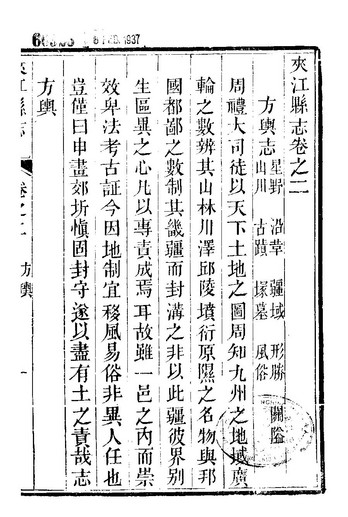 夾江縣志卷之二
方輿志 星野 沿革 疆域 形勝 關隘
山川 古蹟 塚墓 風俗
周禮大司徒以天下土地之圖周知九州之地域廣
輪之數辨其山林川澤邱陵墳衍原隰之名物與邦
國都鄙之數制其畿疆而封溝之非以此疆彼界別
生區異之心凡以專責成焉耳故雖一邑之内而崇
效卑法考古証今因地制宜移風易俗非異人任也
豈僅曰申畫郊圻愼固封守遂以盡有土之責哉志
方輿
夾江縣志
卷之二
方輿
一
1937